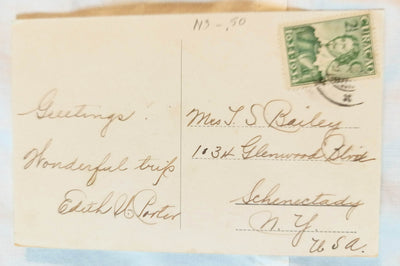 N3 - .50
CURAÇAO
2½ C
Greetings!
Wonderful trip
Edith W. Porter
Mrs T S Bailey
1034 Glenwood Blvd
Schenectady
N.Y.
U.S.A.